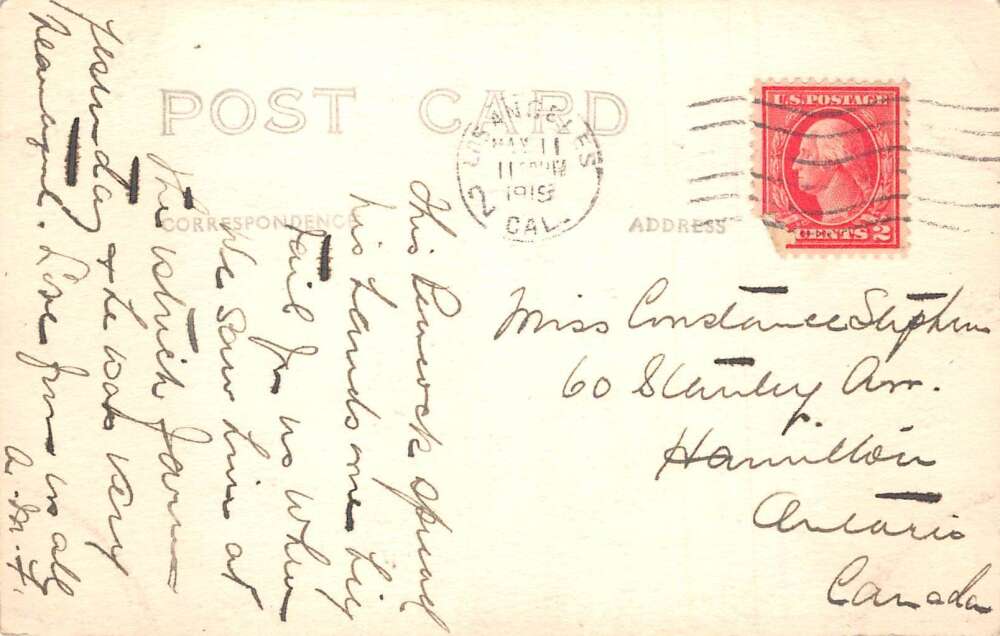 POST CARD
CORRESPONDENCE
ADDRESS
U.S. POSTAGE
CENTS 2
LOS ANGELES
MAY 11
11
1915
CAL.
2
This Peacock spread
his handsome big
tail for us when
we saw him at
the ostrich farm
yesterday & he was very
near us all
Miss Constance Stephens
60 Stanley Ave.
Hamilton
Ontario
Canada
Love from us all
A. M. F.